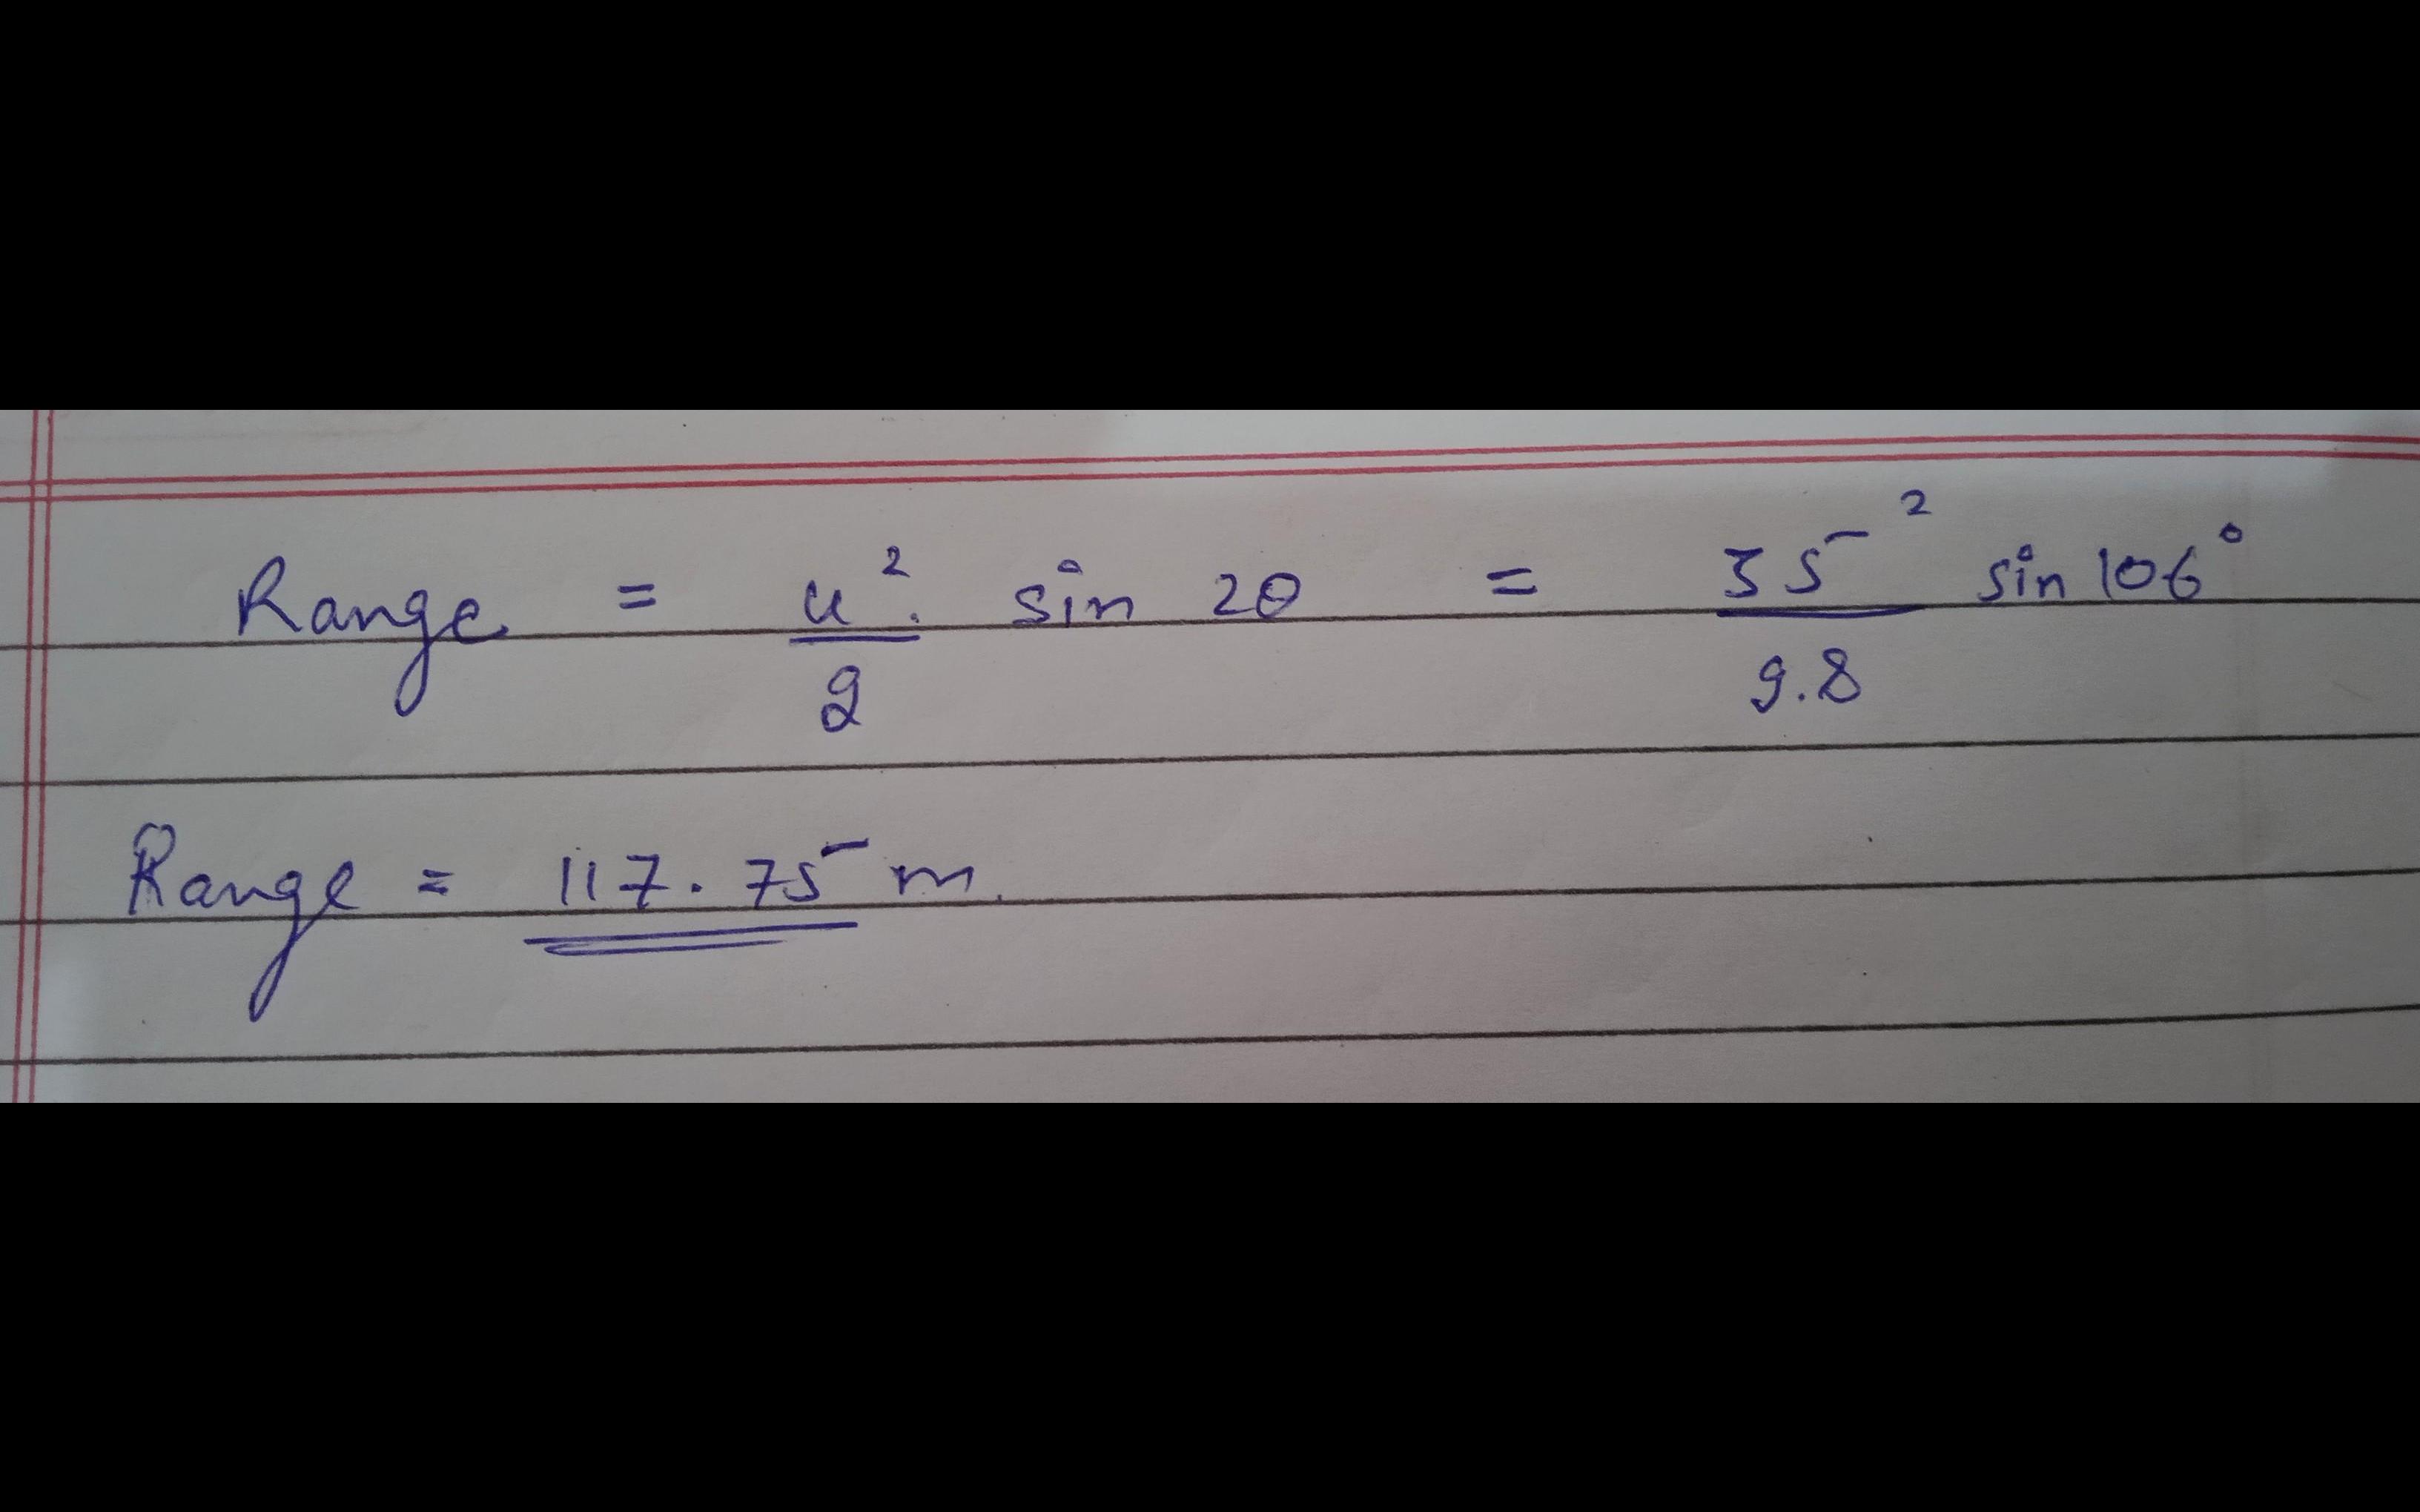 Range = u². / g sin 2θ = 35² / 9.8 sin 106°
Range = 117.75 m.